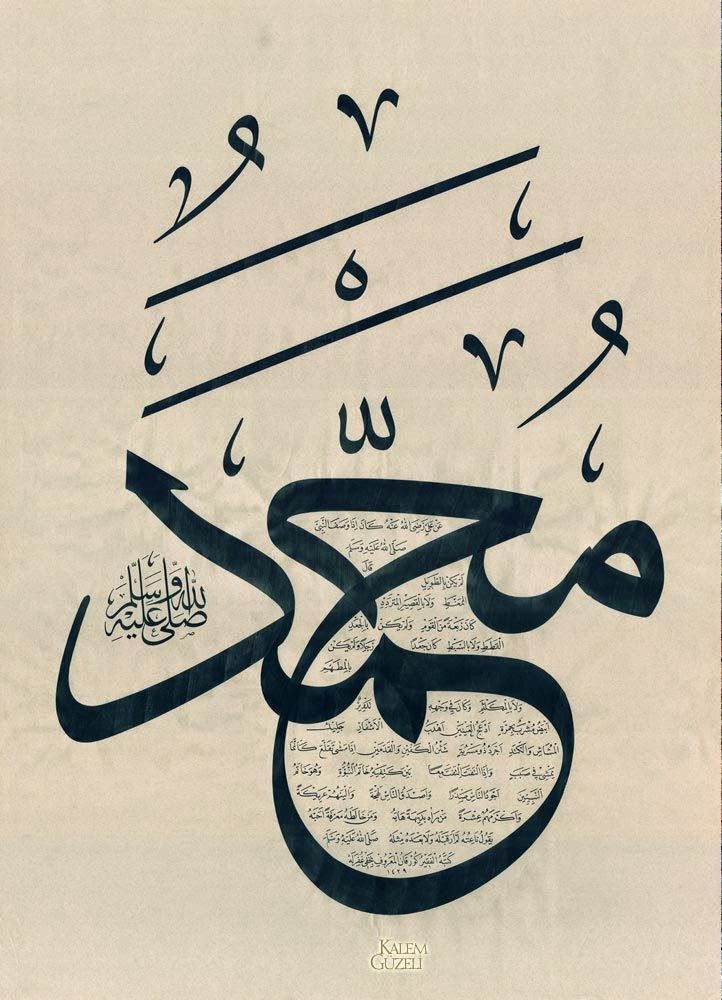 مُحَمَّدٌ
صلى الله عليه وسلم
عَنْ عَلِيٍّ رَضِيَ اللهُ عَنْهُ كَانَ اِذَا وَصَفَ النَّبِيَّ
صَلَّى اللهُ عَلَيْهِ وَسَلَّمَ
قَالَ
لَمْ يَكُنْ بِالطَّوِيلِ
المُمَّغَطِ وَلَا بِالقَصِيرِ المُتَرَدِّدِ
كَانَ رَبْعَةً مِنَ القَوْمِ وَلَمْ يَكُنْ بِالجَعْدِ
القَطَطِ وَلَا بِالسَّبْطِ كَانَ جَعْدًا رَجِلًا وَلَمْ يَكُنْ
بِالمُطَهَّمِ
وَلَا بِالمُكَلْثَمِ وَكَانَ فِي وَجْهِهِ تَدْوِيرٌ
اَبْيَضُ مُشْرَبٌ بِحُمْرَةٍ اَدْعَجُ العَيْنَيْنِ اَهْدَبُ الاَشْفَارِ جَلِيلُ
المُشَاشِ وَالكَتَدِ اَجْرَدُ ذُو مَسْرُبَةٍ شَثْنُ الكَفَّيْنِ وَالقَدَمَيْنِ اِذَا مَشَى تَقَلَّعَ كَاَنَّمَا
يَمْشِي فِي صَبَبٍ وَاِذَا التَفَتَ التَفَتَ مَعًا بَيْنَ كَتِفَيْهِ خَاتَمُ النُّبُوَّةِ وَهُوَ خَاتَمُ
النَّبِيِّينَ اَجْوَدُ النَّاسِ صَدْرًا وَاَصْدَقُ النَّاسِ لَهْجَةً وَاَلْيَنُهُمْ عَرِيكَةً
وَاَكْرَمُهُمْ عِشْرَةً مَنْ رَاٰهُ بَدِيهَةً هَابَهُ وَمَنْ خَالَطَهُ مَعْرِفَةً اَحَبَّهُ
يَقُولُ نَاعِتُهُ لَمْ اَرَ قَبْلَهُ وَلَا بَعْدَهُ مِثْلَهُ صَلَّى اللهُ عَلَيْهِ وَسَلَّمَ
كَتَبَهُ الفَقِيرُ
١٤٢٩
KALEM
GÜZELİ